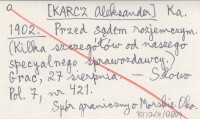 a [KARCZ Aleksander] Ka.
1902. Przed sądem rozjemczym.
(Kilka szczegółów od naszego
specyalnego sprawozdawcy.)
Grac, 27 sierpnia. — Słowo
Pol. 7, nr 421.
Spór graniczny o Morskie Oko.